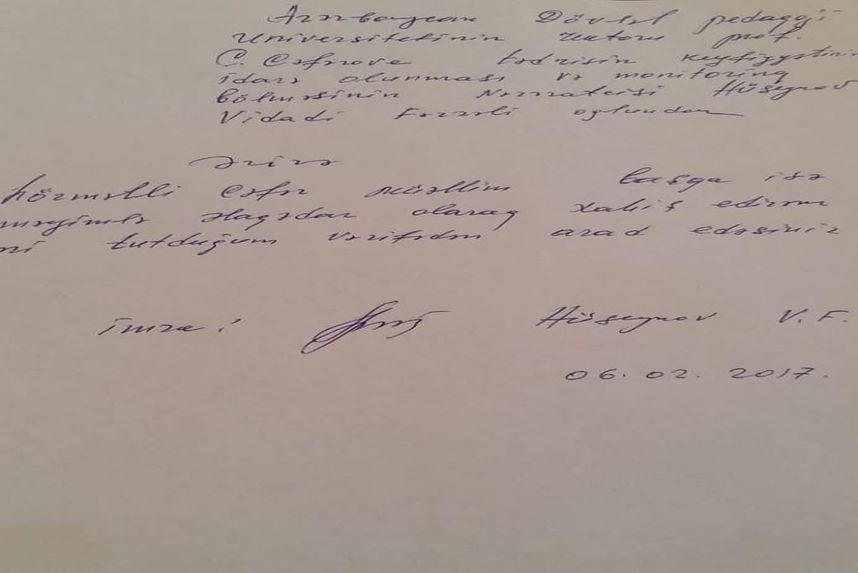 Azərbaycan Dövlət pedaqoji
Universitetinin rektoru prof.
C. Cəfərova tədrisin keyfiyyətinin
idarə olunması və monitoring
bölməsinin Nəzarətçisi Hüseynov
Vidadi Fərzəli oğlundan
Ərizə
hörmətli Cəfər müəllim başqa işə
əlaqədar olaraq xahiş edirəm
tutduğum vəzifədən azad edəsiniz
imza: Hüseynov V. F.
06. 02. 2017.